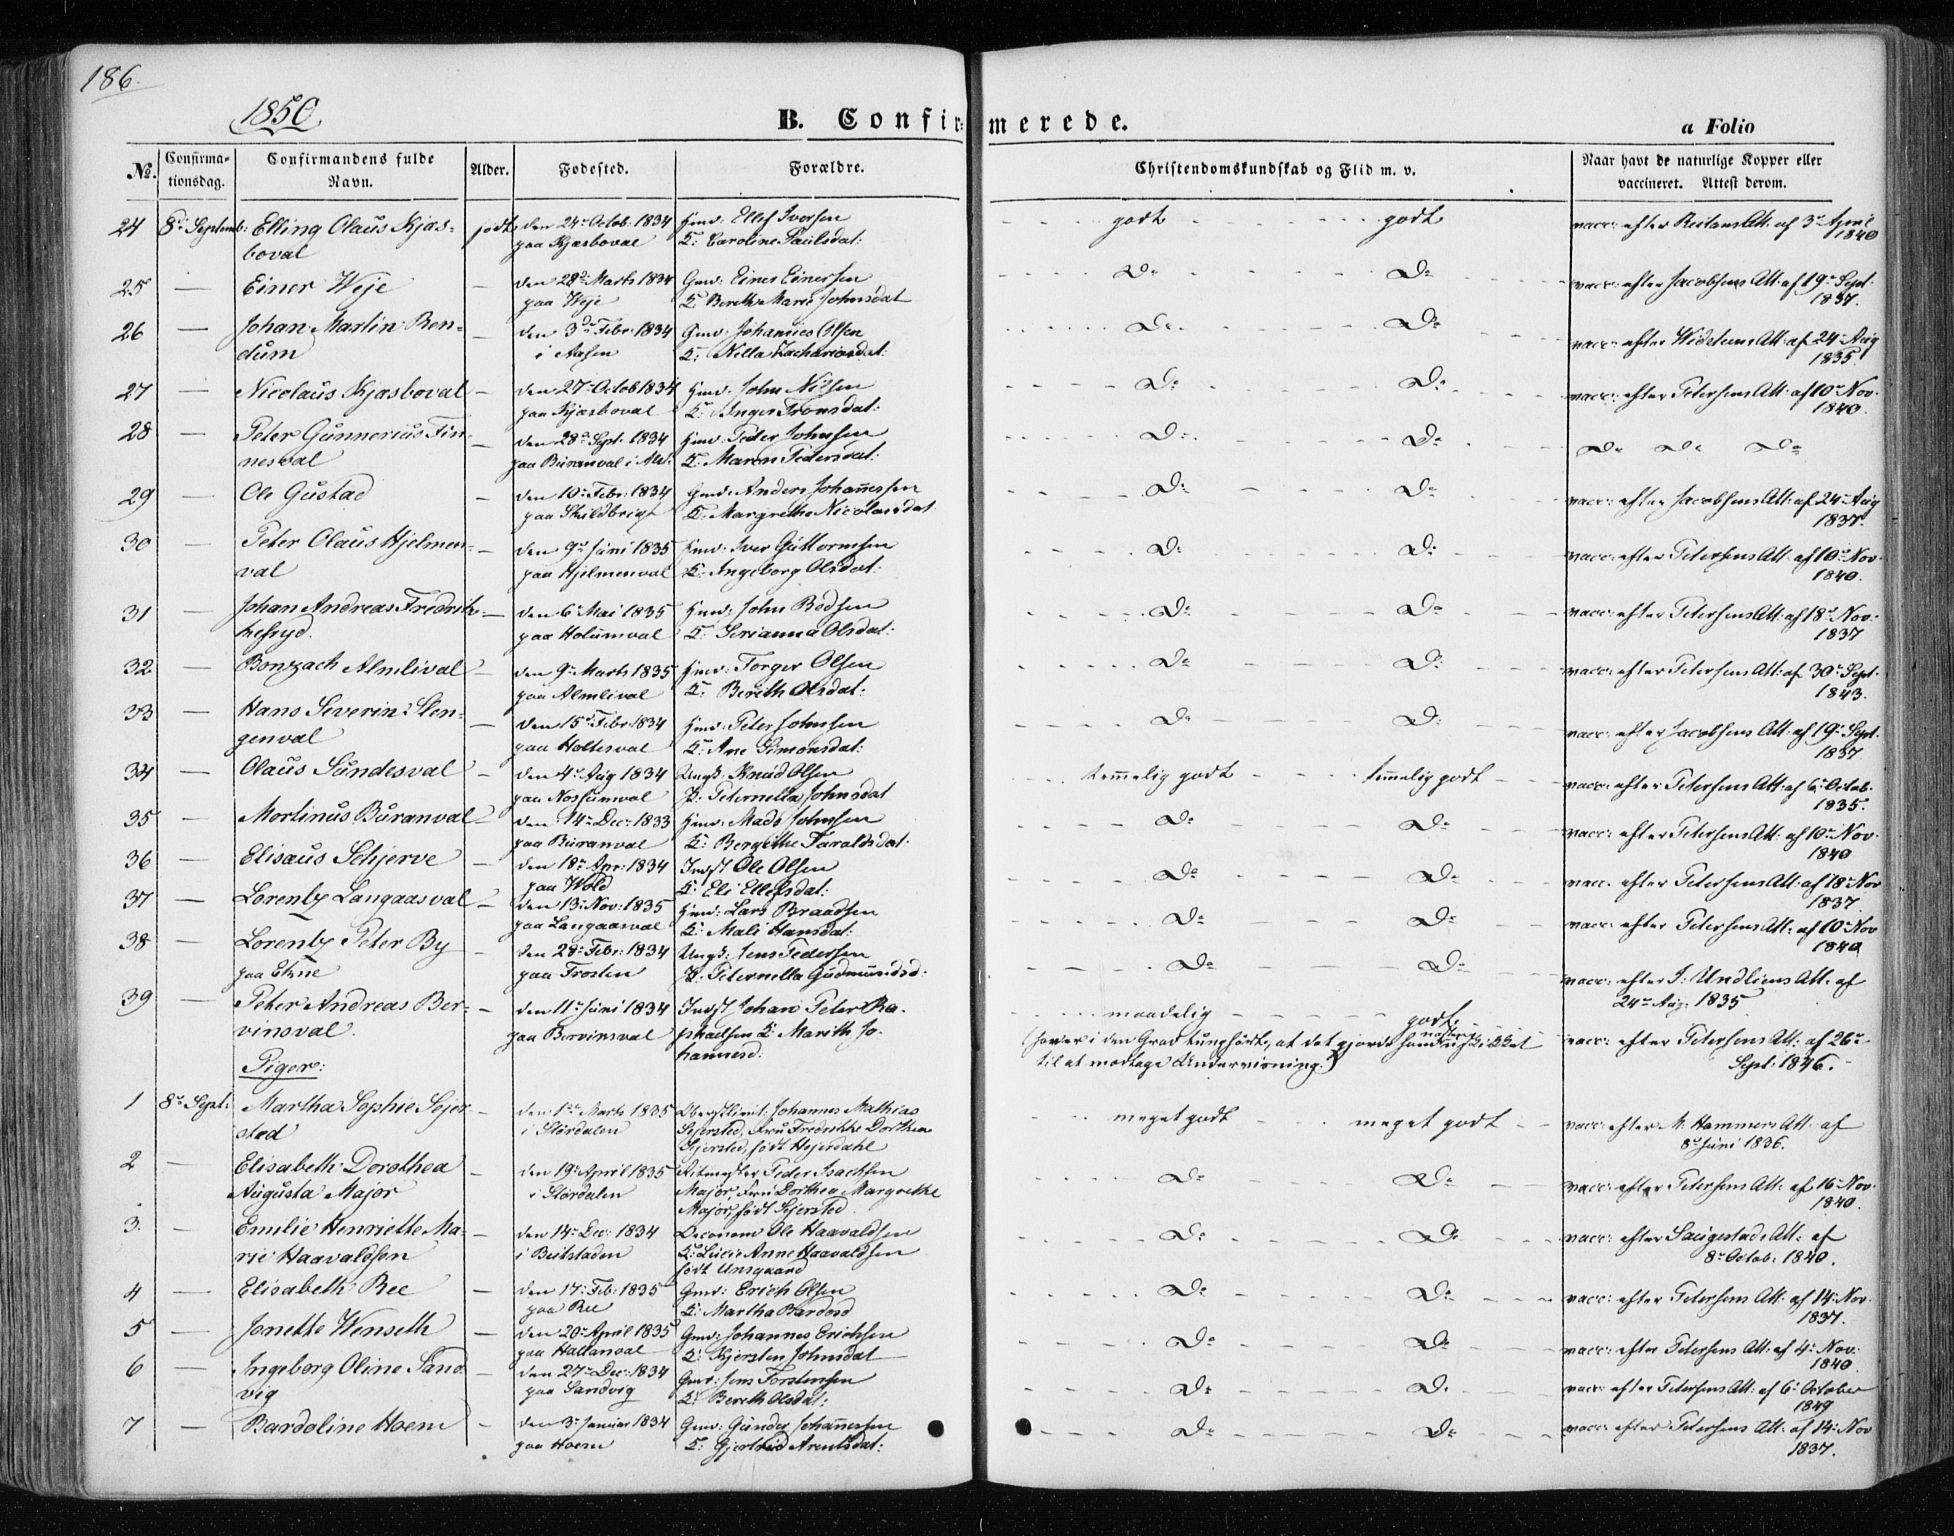 186.
1850
B. Confirmerede.
a Folio
No. Confirmationsdag. Confirmandens fulde Navn. Alder. Fødested. Forældre. Christendomskundskab og Flid m. v. Naar havt de naturlige Kopper eller vaccineret. Attest derom.
24 8de Septemb: Elling Olaus Kjøs- født den 24de Octob. 1834 Hmd: Ellef Iversen godt godt vacc: efter Att: af 3de April
boval paa Kjøsboval K: Caroline Paulsdat: 1840
25 — Einer Weje — den 28de Marts 1834 Gmd: Einer Einersen Do Do vacc: efter Jacobsens Att: af 19de Sept.
paa Weje K: Bereth Marie Johnsdat 1837.
26 — Johan Martin Ben- — den 3de Febr. 1834 Gmd: Johannes Olsen Do Do vacc: efter Att: af 24de Aug
dum i Aasen K: Nella Zachariasdat: 1835.
27 — Nicolaus Kjøsboval — den 27de Octob 1834 Hmd: John Nilsen Do Do vacc: efter Petersens Att: af 10de Nov.
paa Kjøsboval K: Inger Tronsdat: 1840.
28 — Peter Gunnerius Fin- — den 28de Sept. 1834 Hmd: Peder Johnsen Do Do Do Do Do
nesval paa Buranval i K: Maren Pedersdat:
29 — Ole Gustad — den 10de Febr: 1834 Gmd: Anders Johannessen Do Do vacc: efter Jacobsens Att: af 24de Aug
paa Skildbrigt K: Margrethe Nicolaisdat 1837.
30 — Peter Olaus Hjelmen- — den 9de Juni 1835 Hmd: Iver Guttormsen Do Do vacc: efter Petersens Att: af 10de Nov.
val paa Hjelmenval K: Ingeborg Olsdat: 1840.
31 — Johan Andreas Fredrik- — den 6te Mai 1835 Hmd: John Bodsen Do Do vacc: efter Petersens Att: af 18de Nov:
hesryd. paa Holumval K: Serianna Olsdat: 1837
32 — Bonzach Almlival — den 9de Marts 1835 Hmd: Torger Olsen Do Do vacc: efter Petersens Att: af 30te Sept.
paa Almlival K: Berith Olsdat: 1843.
33 — Hans Severin Sten- — den 15de Febr 1834 Hmd: Peter Johnsen Do Do vacc: efter Jacobsens Att: af 19de Sept.
genval paa Holtesval K: Ane Simonsdat: 1837.
34 — Olaus Sundesval — den 4de Aug 1834 Ungk: Knud Olsen temmelig godt temmelig godt vacc: efter Petersens Att: af 6te Octob.
paa Nossumval P: Peternella Johnsdat 1835.
35 — Mortinus Buranval — den 14de Dec: 1833 Hmd: Mads Johnsen Do Do vacc: efter Petersens Att: af 10de Nov
paa Buranval K: Bergithe Taraldsdat: 1840
36 — Elisæus Schjerve — den 18de Apr: 1834 Indst Ole Olsen Do Do vacc. efter Petersens Att: af 18de Nov
paa Wold K: Eli Ellefsdat: 1837
37 — Lorentz Langaasval — den 13de Nov: 1835 Hmd: Lars Braadsen Do Do vacc: efter Petersens Att: af 10de Nov
paa Langaasval K: Mali Hansdat: 1840
38 — Lorentz Peter By — den 28de Febr: 1834 Ungk: Jens Pedersen Do Do vacc: efter J: Undliens Att: af
paa Ekne paa Frosten P: Peternella Gudmundsd: 24de Aug. 1835
39 — Peter Andreas Ber- — den 11te Juni 1834 Indst Johan Peter Ra- maadelig godt vacc: efter Petersens Att: af 26de
vinsval. paa Bervinsval phaelsen K: Marith Jo- (haver i den Grad tunghørt, at det gjorde ham næsten uskikket Sept: 1846.
hannesd: til at modtage Undervisning.)
Piger:
1 8de Sept: Martha Sophie Sejer- — den 1ste Marts 1835 Oberstlieut: Johannes Mathias meget godt meget godt vacc: efter N. Hammers Att: af
sted i Størdalen Sejersted, Fru Fredrikke Dorthea 8de Juni 1836.
Sejersted, født Hejerdahl
2 — Elisabeth Dorothea — den 19de April 1835 Ritmester Peder Isachsen Do Do vacc: efter Petersens Att: af 16de Nov:
Augusta Major i Størdalen Major, Fru Dorthea Margrethe 1840.
Major, født Sejersted.
3. — Emilie Henriette Ma- — den 14de Dec: 1834 Oeconom Ole Haavaldsen Do Do vacc: efter Saugestads Att: af
rie Haavaldsen i Beitstaden K: Lucie Anne Haavaldsen 8de Octob: 1840.
født Unsgaard
4 — Elisabeth Ree — den 17de Feb: 1835 Gmd: Erich Olsen Do Do vacc: efter Petersens Att: af 14de Nov.
paa Ree K: Martha Bardosd 1837.
5 — Jonette Wenseth — den 20de April 1835 Gmd: Johannes Erichsen Do Do vacc: efter Petersens Att: af 4de Nov:
paa Hallanval K: Kjersten Johnsdat 1840.
6 — Ingeborg Oline Sand- — den 27de Dec: 1834 Gmd: Jens Torstensen Do Do vacc: efter Petersens Att: af 6te October
vig paa Sandvig K: Bereth Olsdat: 1849
7 — Bardoline Hoem — den 3de Januar 1834 Gmd: Gunder Johannessen Do Do vacc: efter Petersens Att: af 14de Nov
paa Hoem K: Gjertrud Arentsdat: 1837.